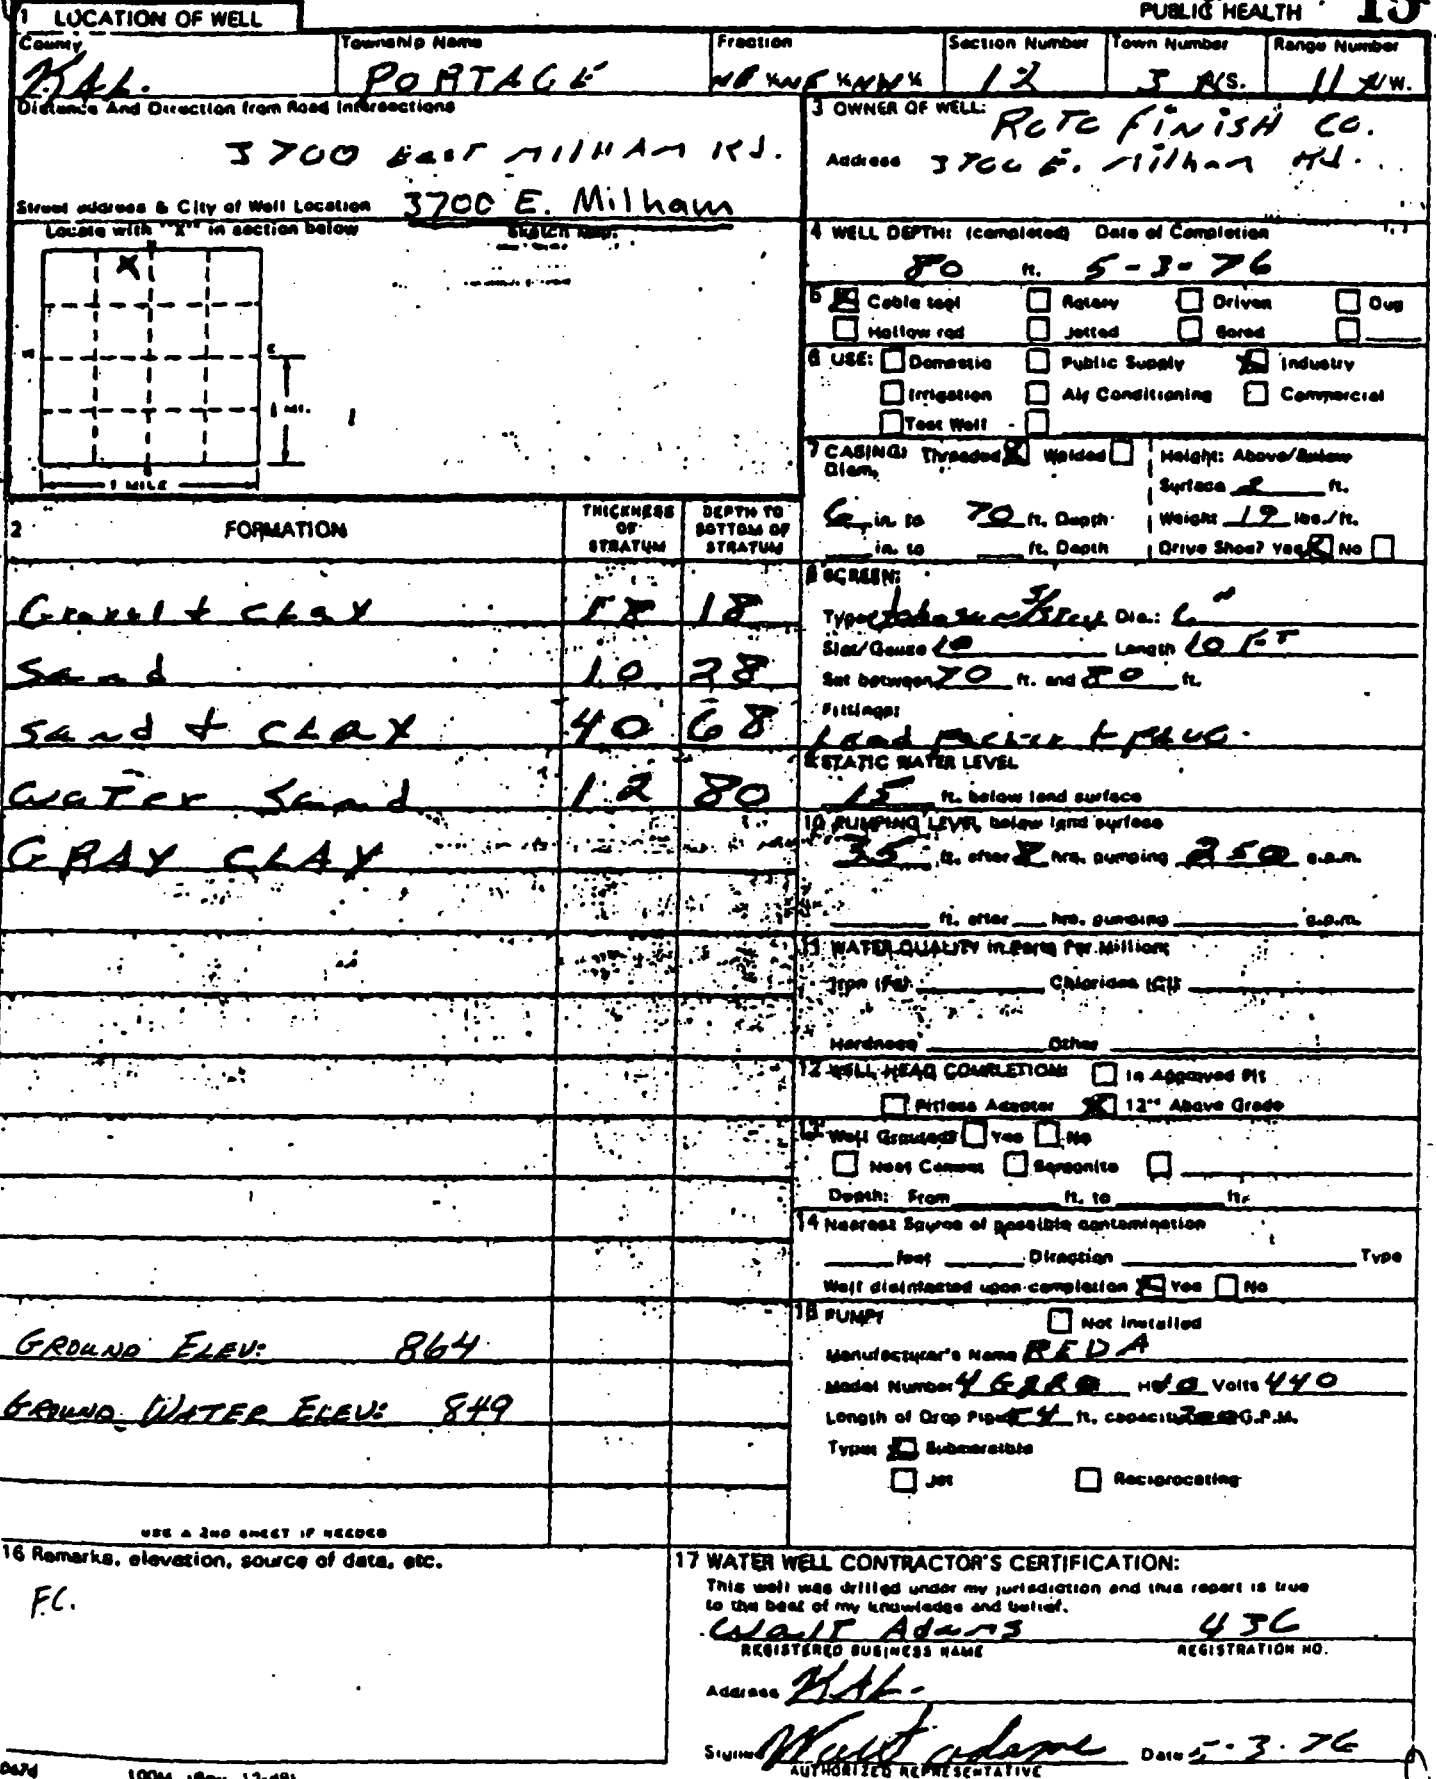 PUBLIC HEALTH
1 LOCATION OF WELL
County Township Name Fraction Section Number Town Number Range Number
KAL. PORTAGE NE ¼ NE ¼ NW ¼ 12 3 N/S. 11 E/W.
Distance And Direction from Road Intersections
3700 East MILHAM Rd.
Street address & City of Well Location 3700 E. Milham
Locate with "X" in section below Sketch Map:
X
1 MILE
3 OWNER OF WELL:
ROTO FINISH CO.
Address 3700 E. Milham Rd.
4 WELL DEPTH: (completed) Date of Completion
80 ft. 5-3-76
5 Cable tool Rotary Driven Dug
Hollow rod Jetted Bored
6 USE: Domestic Public Supply Industry
Irrigation Air Conditioning Commercial
Test Well
7 CASING: Threaded Welded Height: Above/Below
Diam. Surface 2 ft.
6 in. to 70 ft. Depth Weight 19 lbs./ft.
in. to ft. Depth Drive Shoe? Yes No
2 FORMATION THICKNESS OF STRATUM DEPTH TO BOTTOM OF STRATUM
Gravel + CLAY 18 18
Sand 10 28
Sand + CLAY 40 68
Water Sand 12 80
GRAY CLAY
GROUND ELEV: 864
GROUND WATER ELEV: 849
USE A 2ND SHEET IF NEEDED
8 SCREEN:
Type: Dia.: 6"
Slot/Gauze 10 Length 10 FT
Set between 70 ft. and 80 ft.
Fittings:
Lead packer + PLUG
9 STATIC WATER LEVEL
15 ft. below land surface
10 PUMPING LEVEL below land surface
35 ft. after 8 hrs. pumping 250 g.p.m.
ft. after hrs. pumping g.p.m.
11 WATER QUALITY in Parts Per Million:
Iron (Fe) Chlorides (Cl)
Hardness Other
12 WELL HEAD COMPLETION: In Approved Pit
Pitless Adapter 12" Above Grade
13 Well Grouted? Yes No
Neat Cement Bentonite
Depth: From ft. to ft.
14 Nearest Source of possible contamination
feet Direction Type
Well disinfected upon completion Yes No
15 PUMP: Not installed
Manufacturer's Name REDA
Model Number HP Volts 440
Length of Drop Pipe 54 ft. capacity G.P.M.
Type: Submersible
Jet Reciprocating
16 Remarks, elevation, source of data, etc.
F.C.
17 WATER WELL CONTRACTOR'S CERTIFICATION:
This well was drilled under my jurisdiction and this report is true
to the best of my knowledge and belief.
Walt Adams 436
REGISTERED BUSINESS NAME REGISTRATION NO.
Address KAL.
Signed Walt Adams Date 5-3-76
AUTHORIZED REPRESENTATIVE
D67d 100M